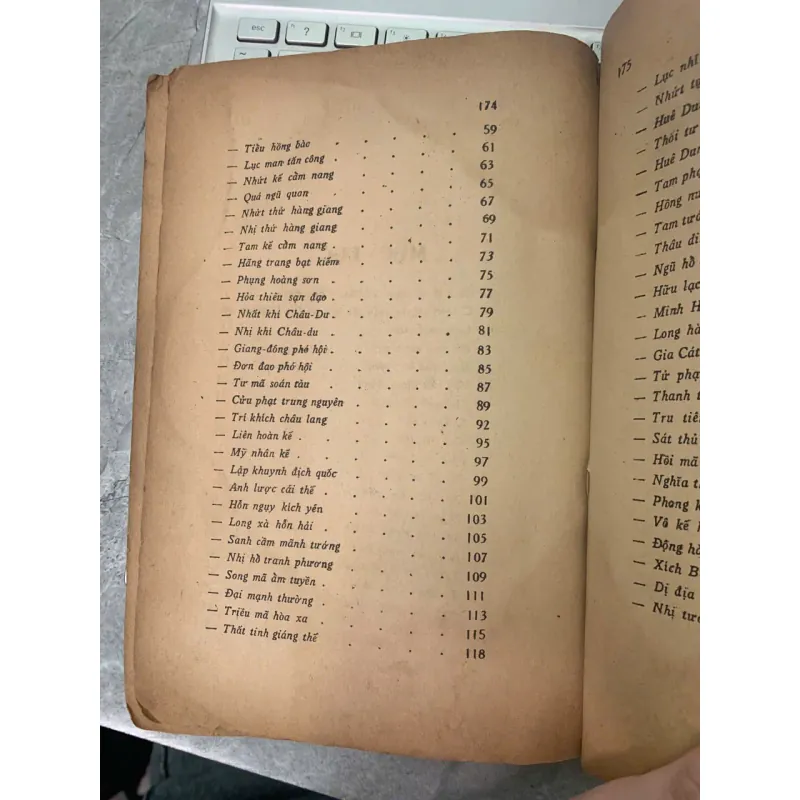 esc
?
174
— Tiều hồng bàc . . . . . 59
— Lục man tấn công . . . . . 61
— Nhứt kế cầm nang . . . . 63
— Quá ngũ quan . . . . . 65
— Nhứt thứ hàng giang . . . . 67
— Nhị thứ hàng giang . . . . 69
— Tam kế cầm nang . . . . . 71
— Hăng trang bạt kiếm . . . . 73
— Phụng hoàng sơn . . . . . 75
— Hỏa thiêu sạn đạo . . . . . 77
— Nhất khi Châu-Du . . . . . 79
— Nhị khi Châu-du . . . . . 81
— Giang-đông phó hội . . . . . 83
— Đơn đao phó hội . . . . . 85
— Tư mã soán tàu . . . . . 87
— Cửu phạt trung nguyên . . . . 89
— Tri khích châu lang . . . . 92
— Liên hoàn kế . . . . . . 95
— Mỹ nhân kế . . . . . . 97
— Lập khuynh địch quốc . . . . 99
— Anh lược cái thế . . . . . 101
— Hỗn ngụy kích yên . . . . 103
— Long xà hỗn hải . . . . . 105
— Sanh cầm mãnh tướng . . . . 107
— Nhị hồ tranh phương . . . . 109
— Song mã ẩm tuyền . . . . . 111
— Đại mạnh thường . . . . . 113
— Triệu mã hòa xa . . . . . 115
— Thất tinh giáng thế . . . . 118
175
— Lục nhĩ
— Nhứt
— Huê Dung
— Thối tư
— Huê Dun
— Tam
— Hồng
— Tam tướ
— Thâu di
— Ngũ hồ
— Hữu lạc
— Minh H
— Long hà
— Gia Cát
— Tử phạ
— Thanh t
— Tru tiê
— Sát thủ
— Hồi mã
— Nghĩa t
— Phong k
— Vô kế
— Động hà
— Xích B
— Dị địa
— Nhị tư